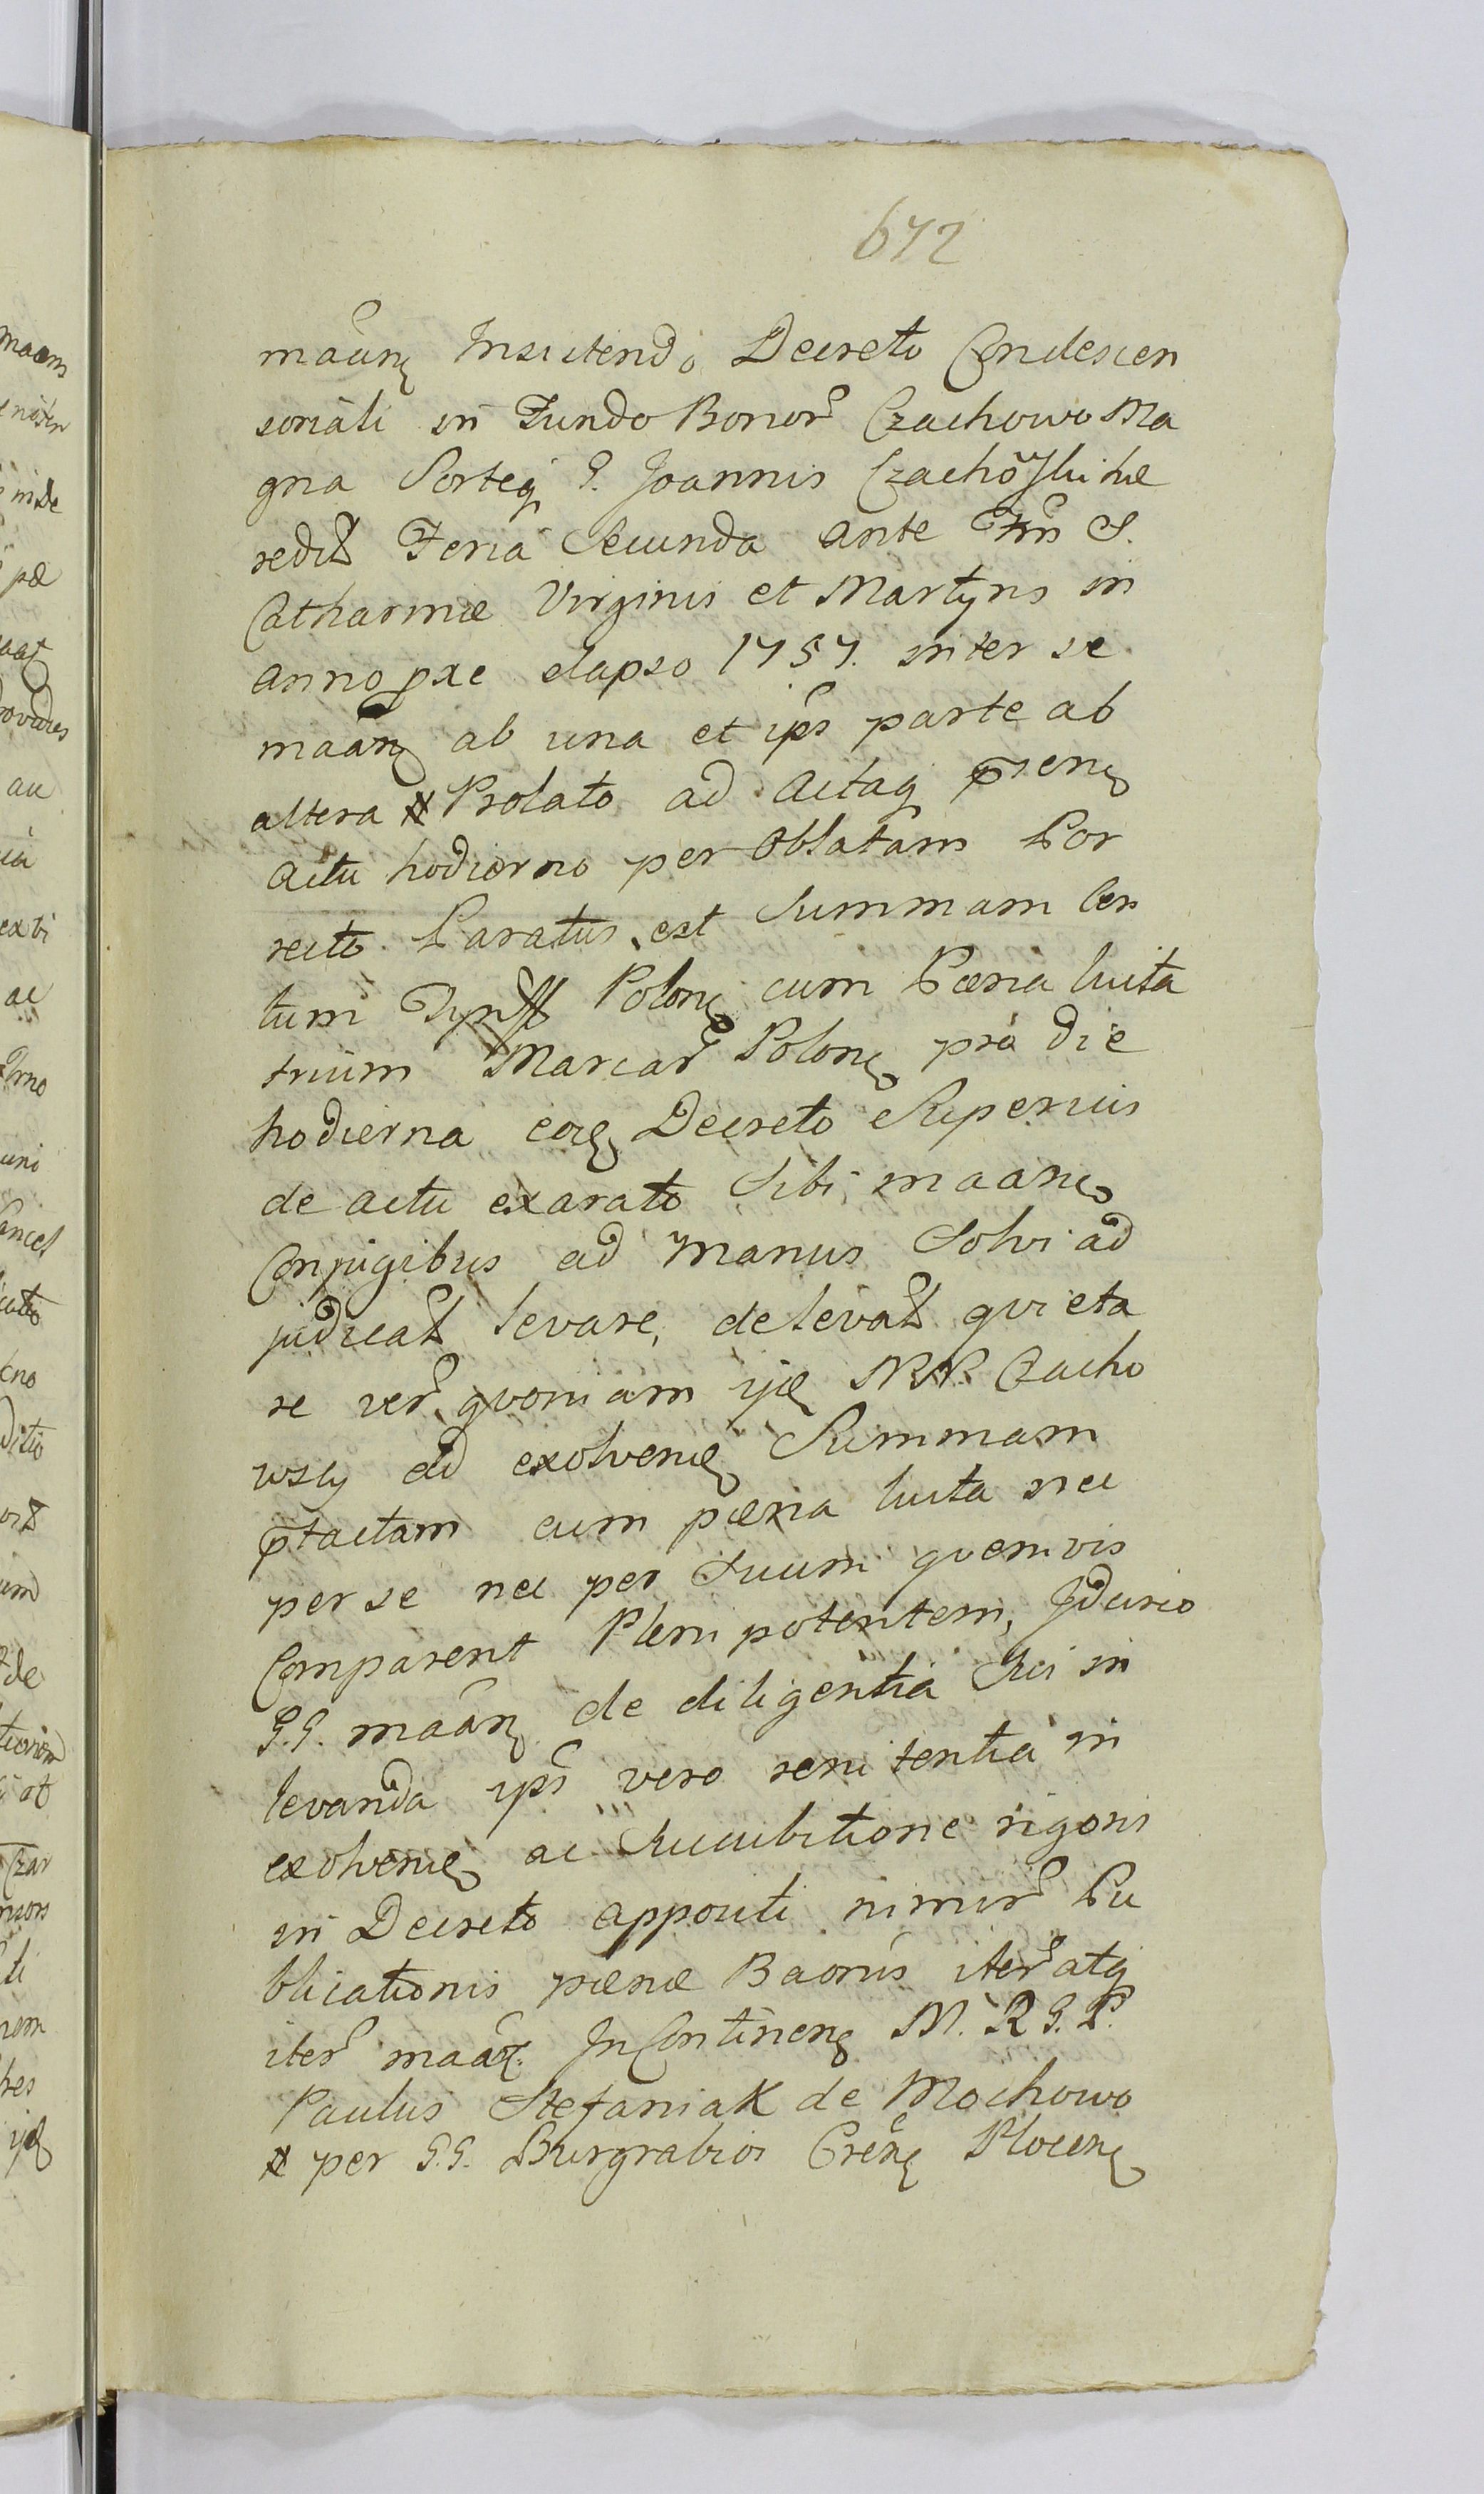 672
maâny Insistendo Decreto Condescen
soriali in Fundo Bonor Czachowo Ma
gna Sorteq G. Joannis Czachôski hæ
redis Feria Secunda ante Fm S.
Catharinæ Virginis et Martyris in
anno pxe elapso 1757. inter se
maân ab una et ips parte ab
altera Prolato ad Actaq psen
actu hodierno per Oblatam Por
recto Paratus est Summam Cen
tum Tynff Polon cum Pæna luita
trium Marcar Polon pro die
hodierna eoq Decreto Superius
de actu exarato Sibi maan
Conjugibus ad Manus Solvi ad
judicat levare, de levat quieta
re ver quoniam ijd NN. Czacho
wscy ad exolven Summam
ptactam cum pæna luita nec
per se nec per Suum quemvis
Comparent Plenipotentem, Idcirco
G.G. maân de diligentia Sui in
levanda ips vero renitentia in
exolven ac Succubitione rigoris
in Decreto appositi nimir Pu
blicationis pænæ Baonis iter atq
iter maân. InContinen M. R G. P.
Paulus Stefaniak de Mochowo
per G.G. Burgrabios Cren Plocen